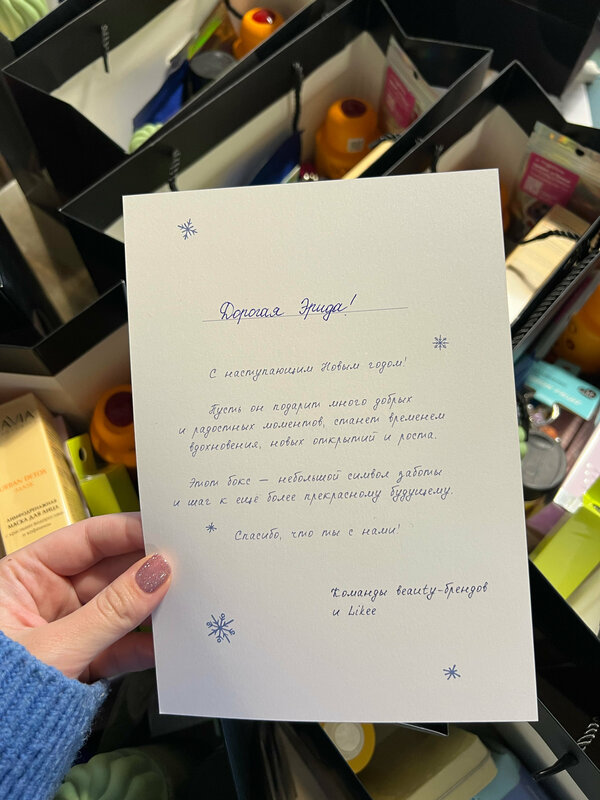 Дорогая Эрида!
С наступающим Новым годом!
Пусть он подарит много добрых
и радостных моментов, станет временем
вдохновения, новых открытий и роста.
Этот бокс — небольшой символ заботы
и шаг к ещё более прекрасному будущему.
Спасибо, что ты с нами!
Команды beauty-брендов
и Likee
AVIA
URBAN DETOX
MASK
ЛИМФОДРЕНАЖНАЯ
МАСКА ДЛЯ ЛИЦА